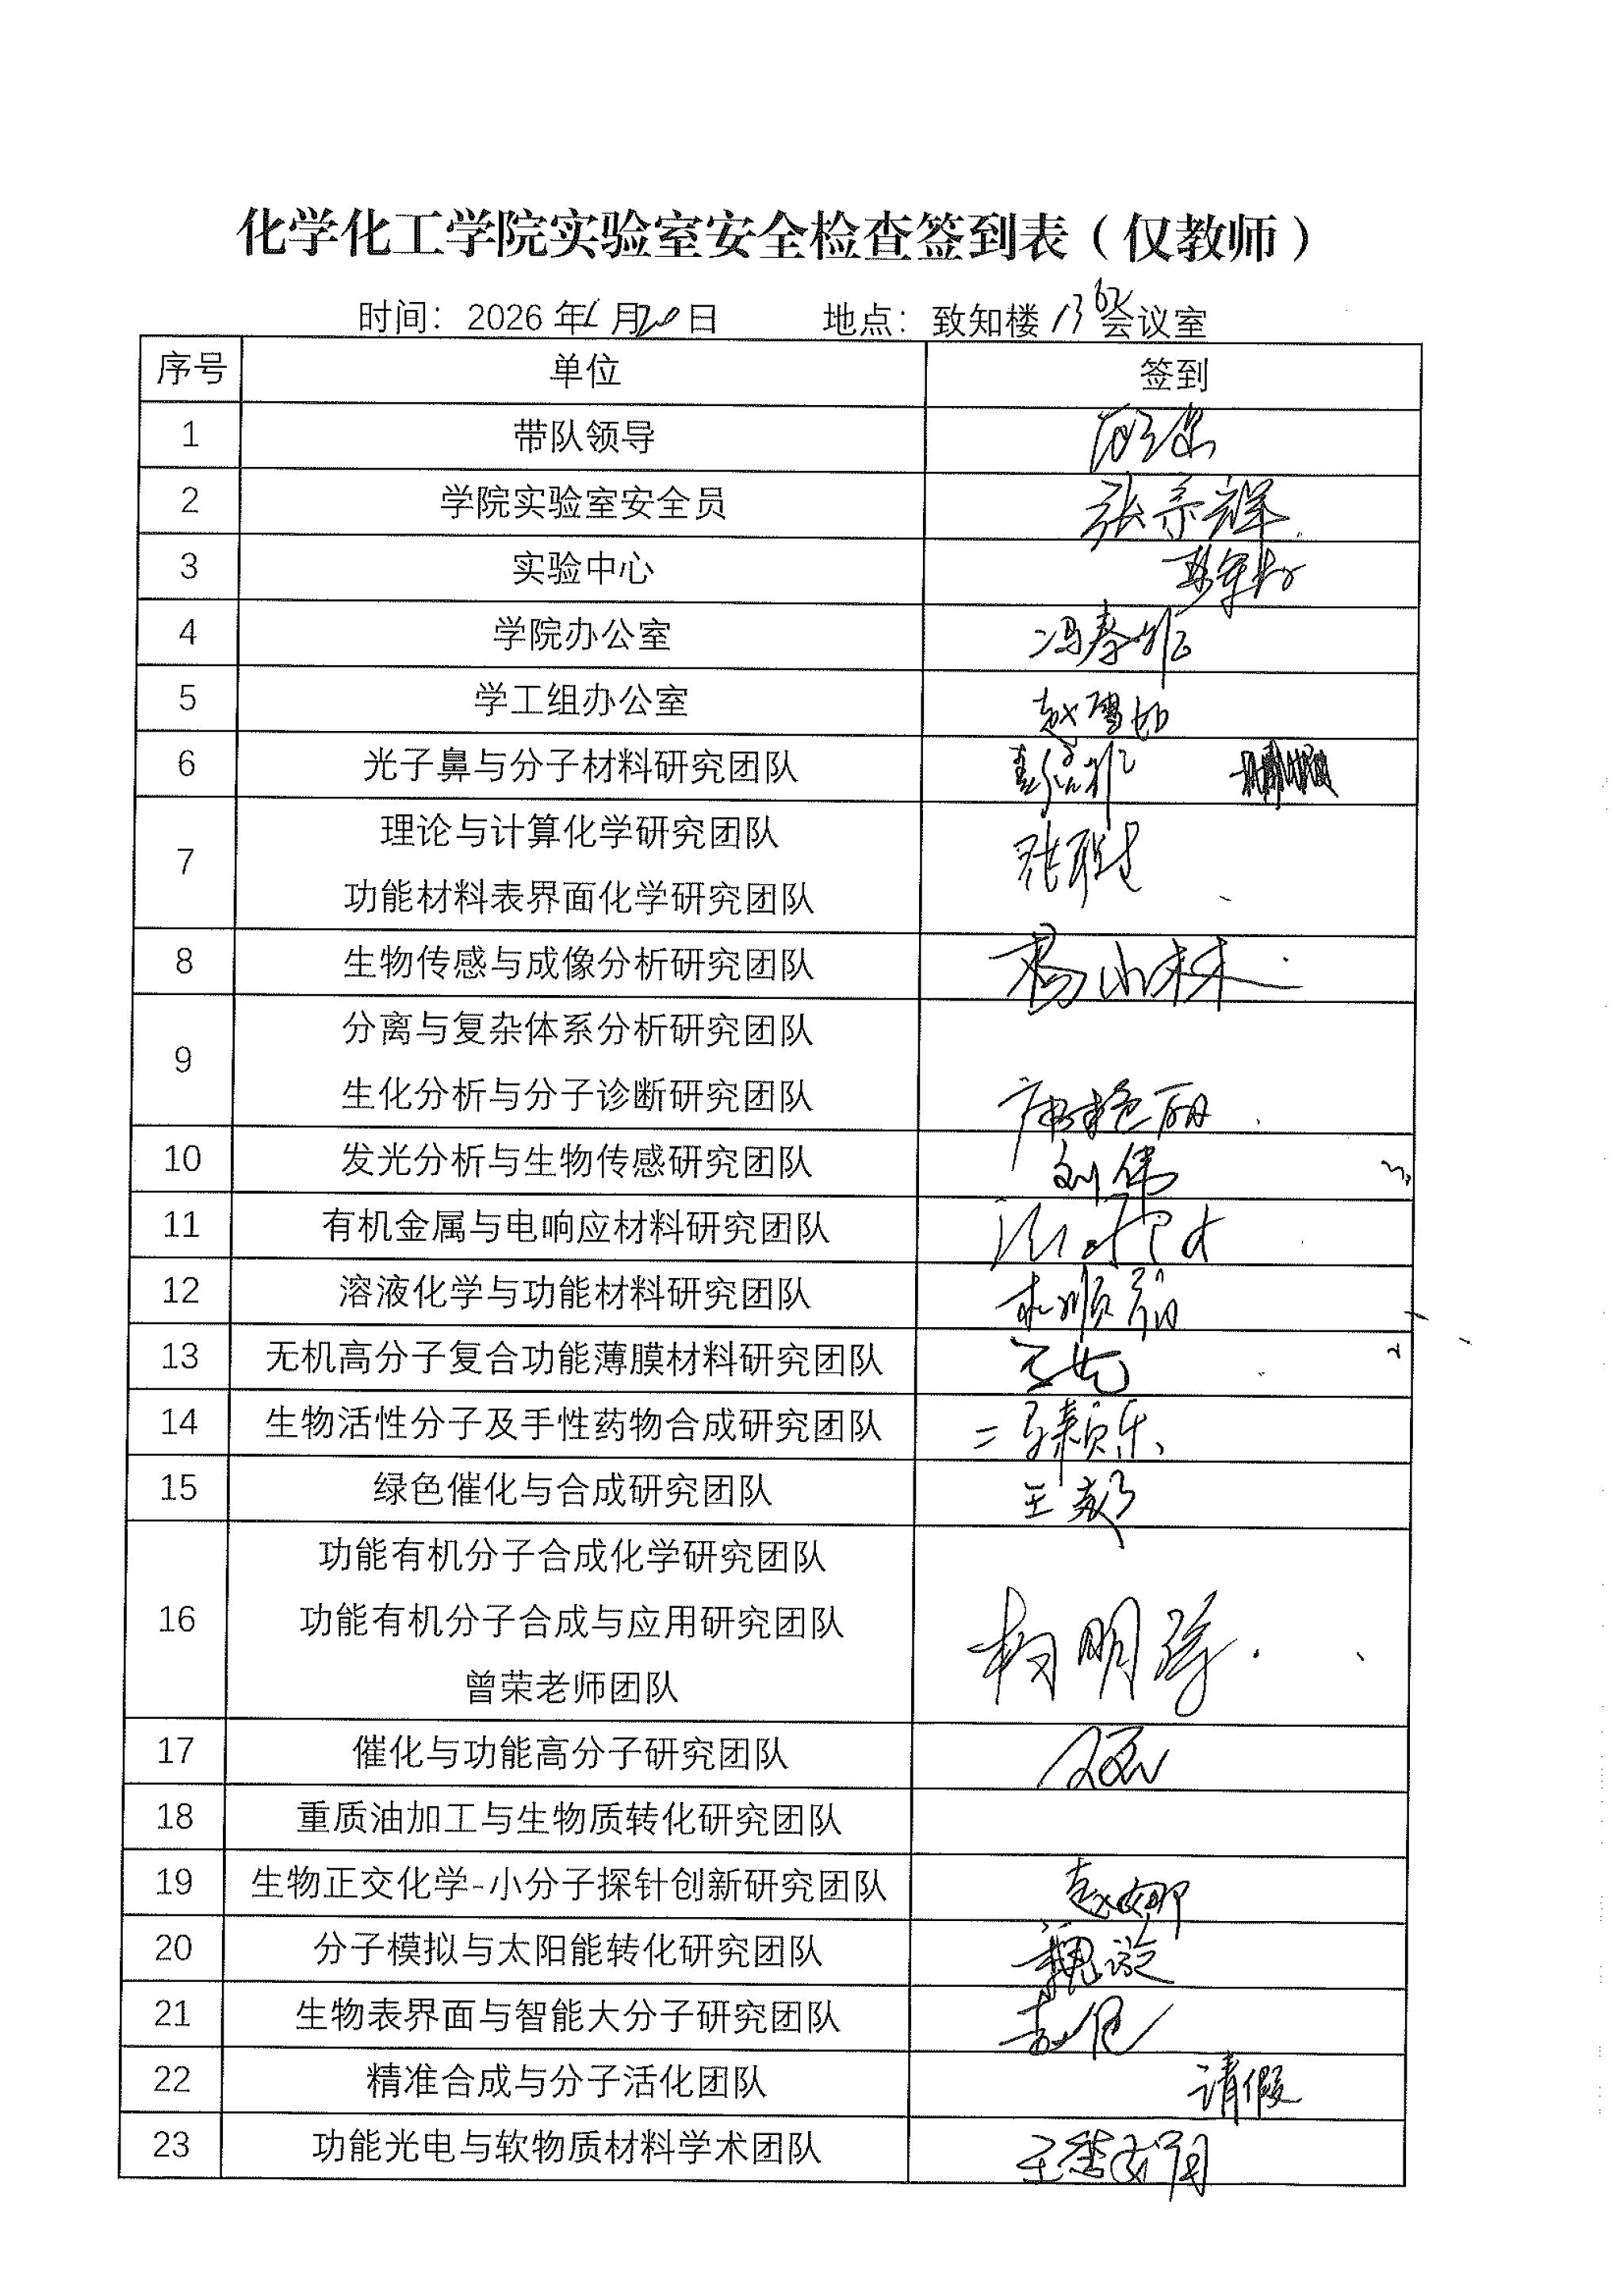 化学化工学院实验室安全检查签到表（仅教师）
时间：2026年1月20日 地点：致知楼1362会议室
序号 单位 签到
1 带队领导
2 学院实验室安全员 张宗辉
3 实验中心
4 学院办公室 冯春维
5 学工组办公室 赵雪如
6 光子鼻与分子材料研究团队
7 理论与计算化学研究团队
功能材料表界面化学研究团队
8 生物传感与成像分析研究团队 杨小林
9 分离与复杂体系分析研究团队
生化分析与分子诊断研究团队 唐艳丽
10 发光分析与生物传感研究团队 刘伟
11 有机金属与电响应材料研究团队
12 溶液化学与功能材料研究团队
13 无机高分子复合功能薄膜材料研究团队
14 生物活性分子及手性药物合成研究团队
15 绿色催化与合成研究团队
16 功能有机分子合成化学研究团队
功能有机分子合成与应用研究团队
曾荣老师团队
17 催化与功能高分子研究团队
18 重质油加工与生物质转化研究团队
19 生物正交化学-小分子探针创新研究团队 赵娜
20 分子模拟与太阳能转化研究团队
21 生物表界面与智能大分子研究团队
22 精准合成与分子活化团队 请假
23 功能光电与软物质材料学术团队